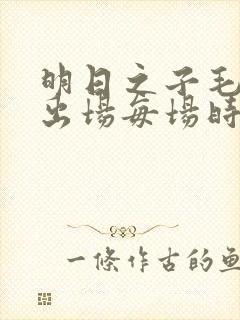 明日之子毛
出場每場時
一條作古的魚